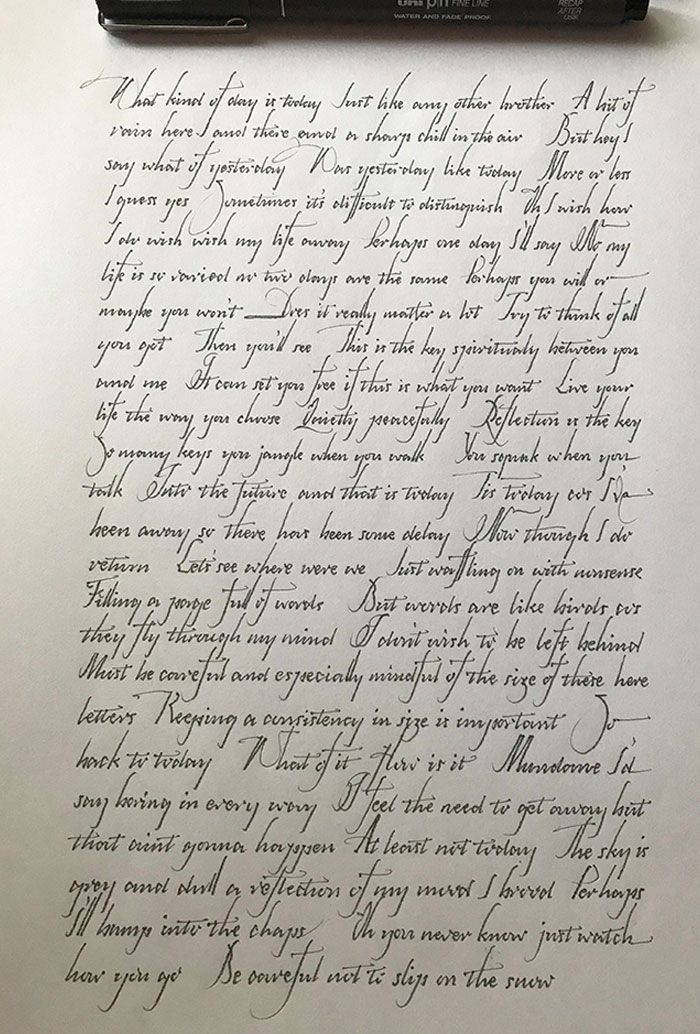 uni pin FINE LINE
WATER AND FADE PROOF
RECAP
AFTER
USE
What kind of day is today Just like any other brother A bit of
rain here I and there and a sharp chill in the air But hey I
say what of yesterday Was yesterday like today More or less
I guess yes Sometimes it's difficult to distinguish Oh I wish how
I do wish wish my life away Perhaps one day I'll say No my
life is so varied no two days are the same Perhaps you will or
maybe you won't Does it really matter a lot Try to think of all
you got Then you'll see This is the key spiritualy between you
and me It can set you free if this is what you want Live your
life the way you choose Quietly peacefully Reflection is the key
So many keys you jangle when you walk You squeak when you
talk Into the future and that is today Tis today cos I've
been away so there has been some delay Now though I do
return Let's see where were we Just waffling on with nonsense
Filling a page full of words But words are like birds cos
they fly through my mind I don't wish to be left behind
Must be careful and especially mindful of the size of these here
letters Keeping a consistency in size is important So
back to today What of it How is it Mundane I'd
say boring in every way I feel the need to get away but
that aint gonna happen At least not today The sky is
grey and dull a reflection of my mood I brood Perhaps
I'll bump into the chaps Oh you never know just watch
how you go Be careful not to slip on the snow